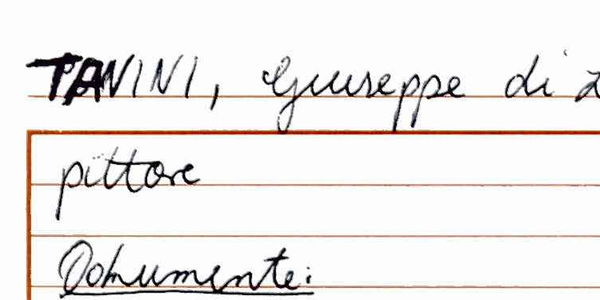 TANINI, Giuseppe di
pittore
Dokumente: